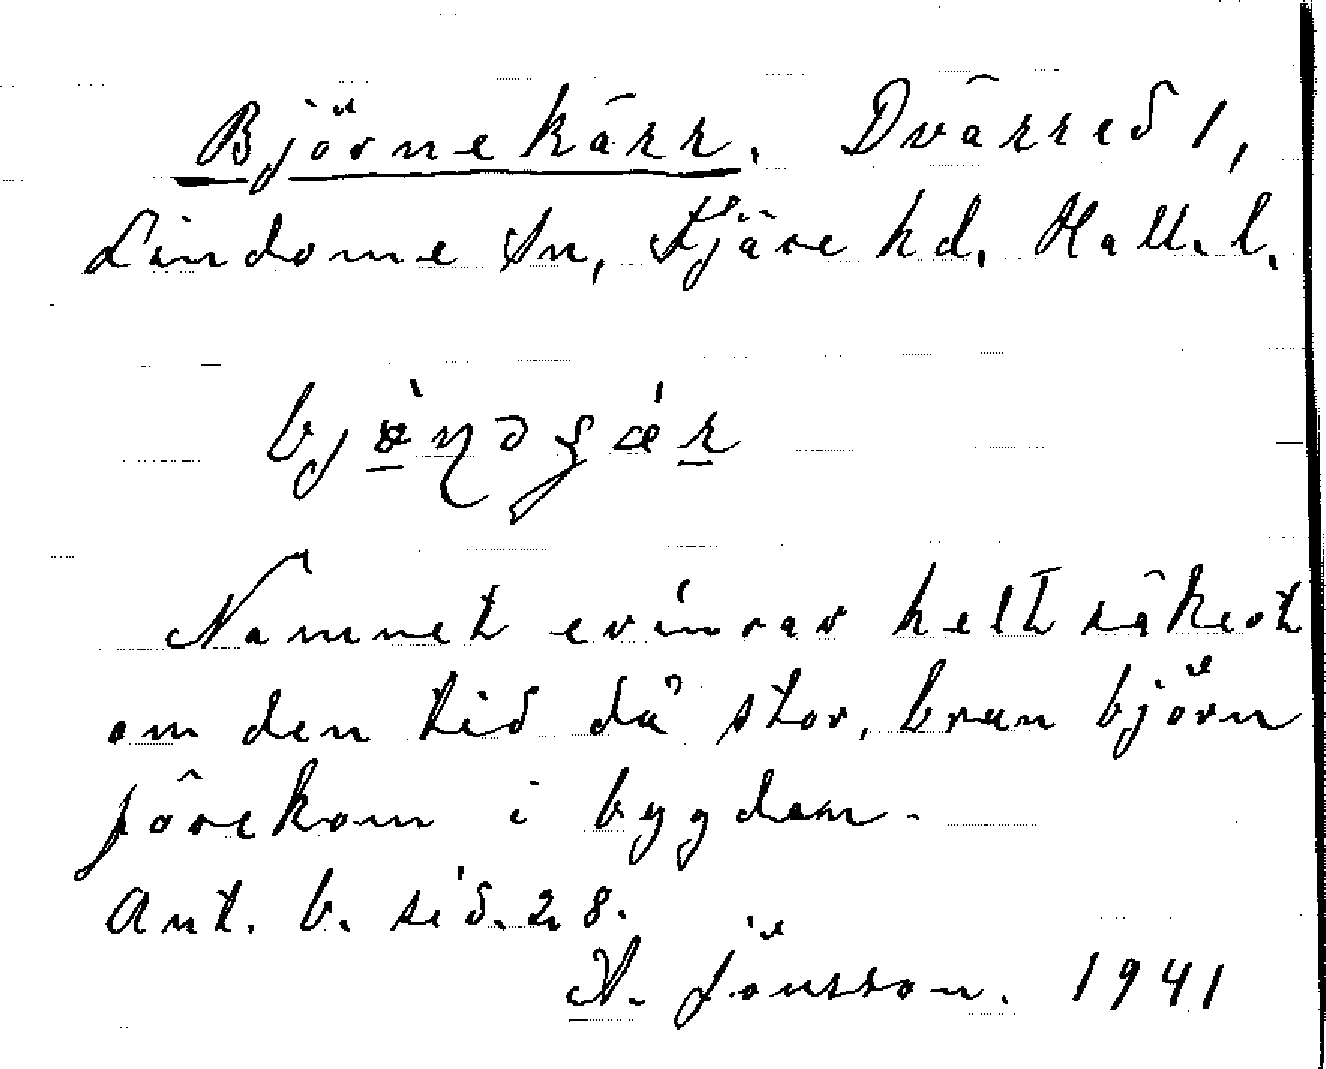 Björnekärr. Dvärred 1,
Lindome sn, Fjäre hd. Hall. l.
Namnet evinrar helt säkert
om den tid då stor, brun björn
förekom i bygden.
Ant. b. sid. 28.
A. Jönsson. 1941